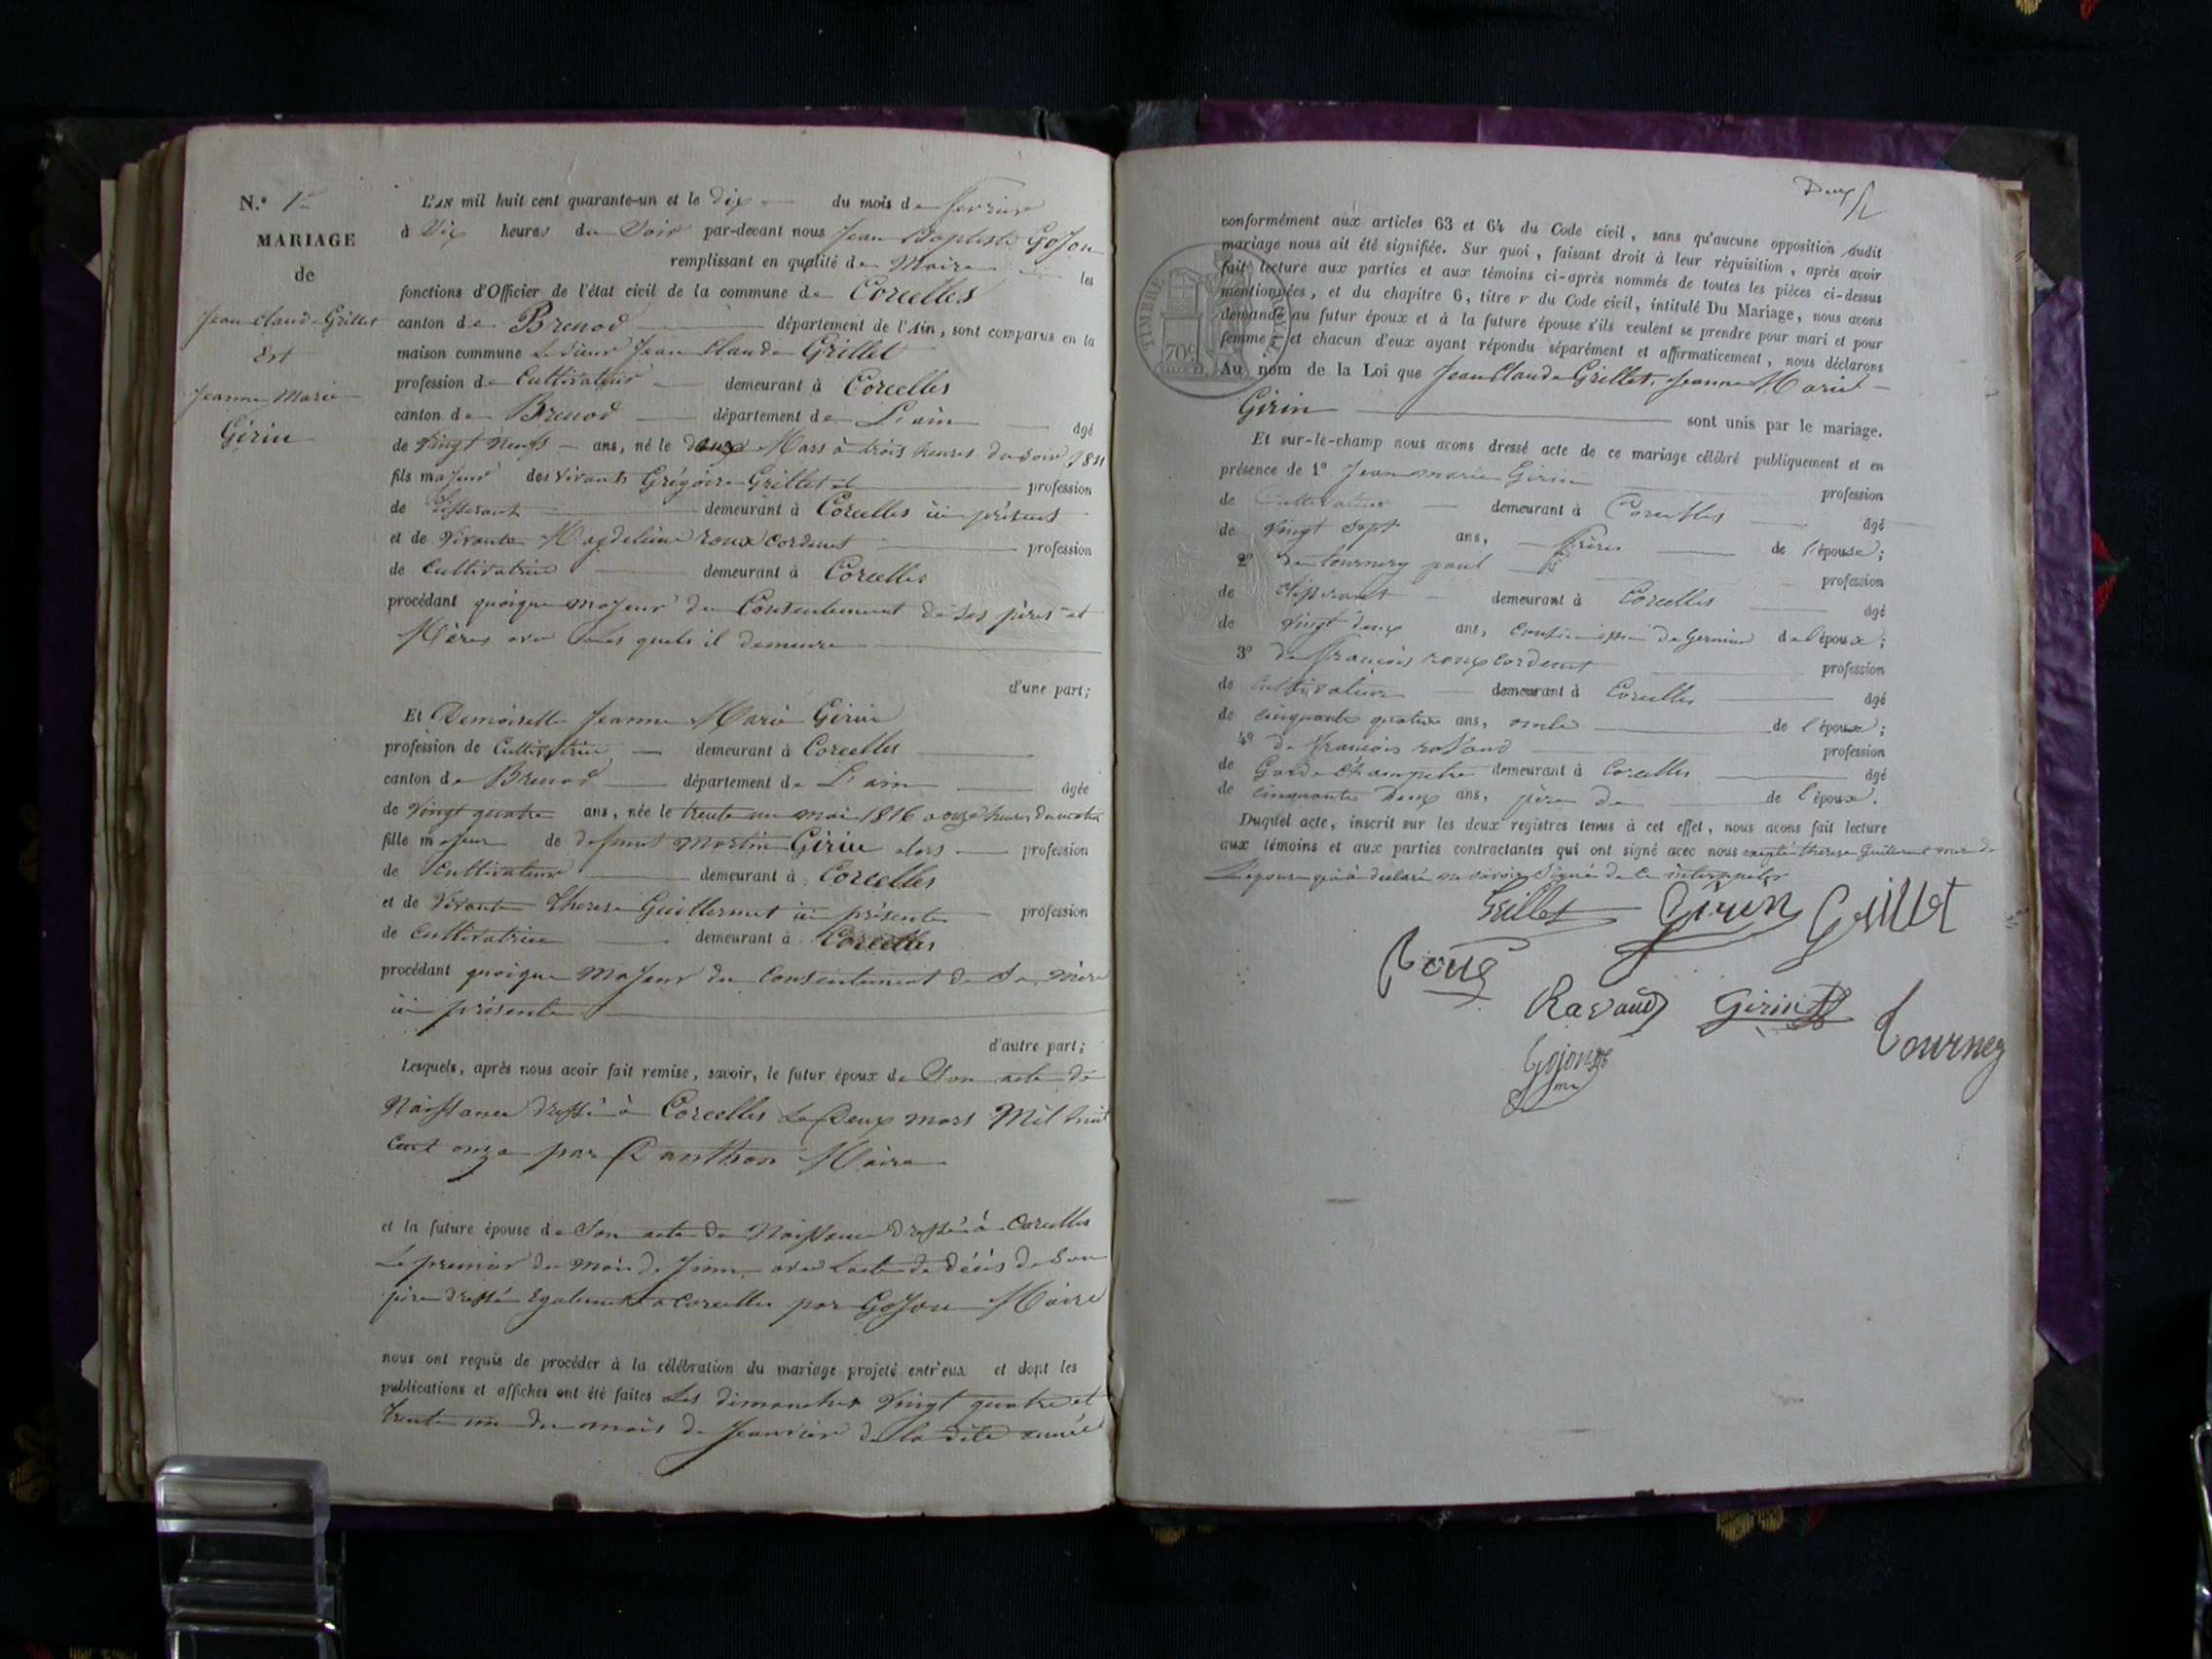 N.º 1er
MARIAGE
de
Jean Claude Grillet
Et
Jeanne Marie
Girin
L'AN mil huit cent quarante-un et le dix du mois de fevrier
à Dix heures du Soir par-devant nous Jean Baptiste Gojon
remplissant en qualité de Maire les
fonctions d'Officier de l'état civil de la commune de Corcelles
canton de Brenod département de l'Ain, sont comparus en la
maison commune Le Sieur Jean Claude Grillet
profession de Cultivateur demeurant à Corcelles
canton de Brenod département de L'ain âgé
de vingt neuf ans, né le deux Mars à trois heures du soir 1811
fils majeur des vivants Grégoire Grillet profession
de Tisserant demeurant à Corcelles ici présent
et de vivante Magdeleine roux cordenet profession
de Cultivatrice demeurant à Corcelles
procédant quoique majeur du Consentement de ses pères et
Mères avec les quels il demeure
d'une part;
Et Demoiselle Jeanne Marie Girin
profession de Cultivatrice demeurant à Corcelles
canton de Brenod département de L'ain âgée
de vingt quatre ans, née le trente un mai 1816 a onze heures du matin
fille majeur de defunt Martin Girin alors profession
de Cultivateur demeurant à Corcelles
et de vivante Therese Guillermet ici présente profession
de Cultivatrice demeurant à Corcelles
procédant quoique Majeur du Consentement de Sa mère
ici présente
d'autre part;
Lesquels, après nous avoir fait remise, savoir, le futur époux de Son acte de
Naissance dressé à Corcelles Le Deux mars Mil huit
Cent onze par Danthon Maire
et la future épouse de Son acte de Naissance dressé à Corcelles
Le premier du mois de Juin avec L'acte de décès de Son
père dressé Egalement a Corcelles par Gojon Maire
nous ont requis de procéder à la célébration du mariage projeté entr'eux et dont les
publications et affiches ont été faites Les dimanches vingt quatre et
trente un du mois de Janvier de la dite année
Deux
conformément aux articles 63 et 64 du Code civil, sans qu'aucune opposition audit
mariage nous ait été signifiée. Sur quoi, faisant droit à leur réquisition, après avoir
fait lecture aux parties et aux témoins ci-après nommés de toutes les pièces ci-dessus
mentionnées, et du chapitre 6, titre V du Code civil, intitulé Du Mariage, nous avons
demandé au futur époux et à la future épouse s'ils veulent se prendre pour mari et pour
femme; et chacun d'eux ayant répondu séparément et affirmativement, nous déclarons
Au nom de la Loi que Jean Claude Grillet, Jeanne Marie
Girin sont unis par le mariage.
Et sur-le-champ nous avons dressé acte de ce mariage célébré publiquement et en
présence de 1º Jean marie Girin profession
de Cultivateur demeurant à Corcelles âgé
de vingt sept ans, frère de l'épouse;
2º de tournery paul profession
de Tisserant demeurant à Corcelles âgé
de vingt deux ans, Cousin de Germain de l'époux;
3º de françois roux cordenet profession
de cultivateur demeurant à Corcelles âgé
de cinquante quatre ans, oncle de l'époux;
4º de françois ravaud profession
de Garde Champetre demeurant à Corcelles âgé
de cinquante deux ans, de l'époux.
Duquel acte, inscrit sur les deux registres tenus à cet effet, nous avons fait lecture
aux témoins et aux parties contractantes qui ont signé avec nous excepté therese Guillermet mere de
L'épouse qui a declaré ne savoir Signé de ce interpellé
Grillet Girin Grillet
Roux
Ravaud Girin
Tournery
Gojon
TIMBRE ROYAL
70c